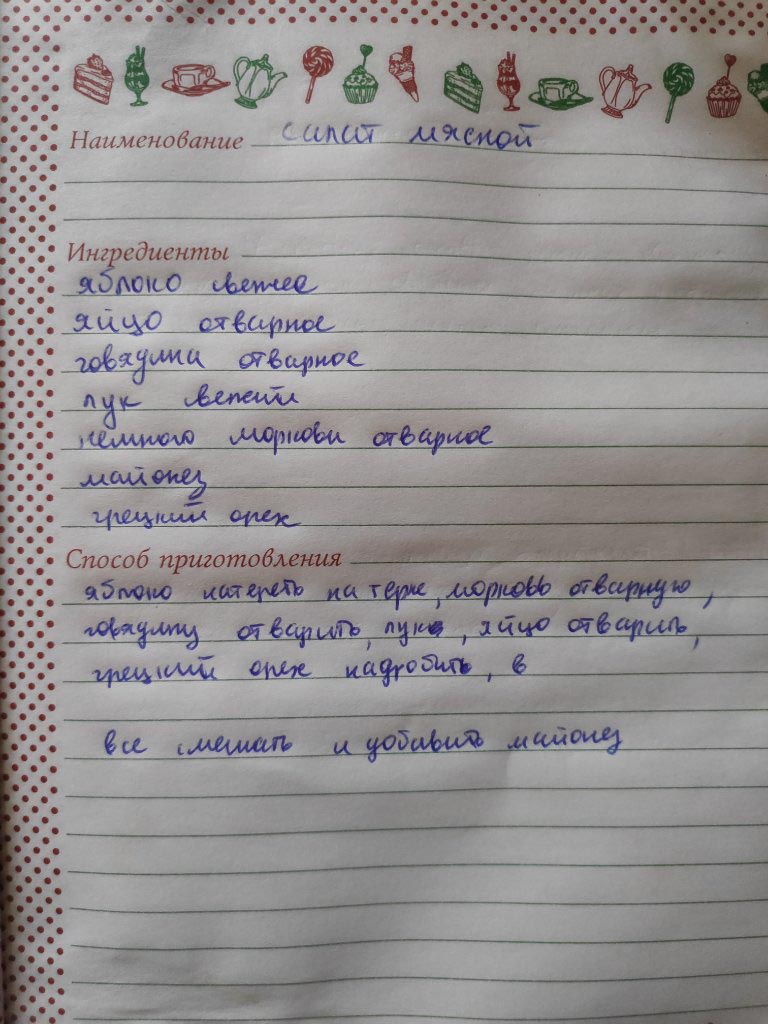 Наименование салат мясной
Ингредиенты
яблоко свежее
яйцо отварное
говядина отварное
лук свежий
немного моркови отварное
майонез
грецкий орех
Способ приготовления
яблоко натереть на терке, морковь отварную,
говядину отварить, лук, яйцо отварить,
грецкий орех надробить, в
все смешать и добавить майонез